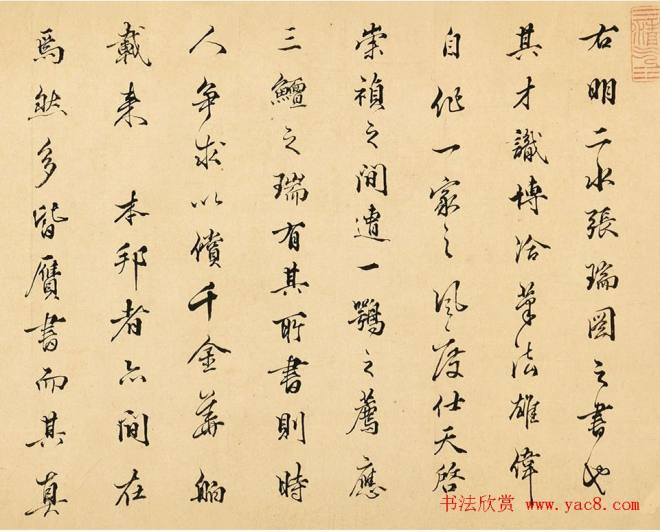 右明二水張瑞図之書也
其才識博洽筆法雄偉
自作一家之風度仕天啓
崇禎之間遭一鶚之薦應
三鱣之瑞有其所書則時
人争求以償千金華舶
載来 本邦者亦間在
焉然多皆贋書而其真
书法欣赏 www.yac8.com